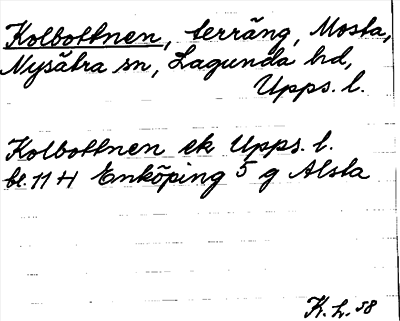 Kolbottnen, terräng, Mosta,
Nysätra sn, Lagunda hd,
Upps. l.
Kolbottnen ek Upps. l.
bl. 11 H Enköping 5 g Alsta
K. L. 58